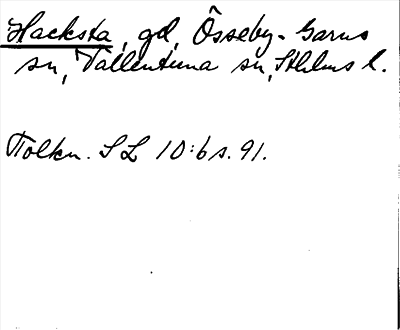 Hacksta, gd, Össeby-Garns
sn, Vallentuna sn, Sthlms l.
Tolkn. SL 10:6 s. 91.